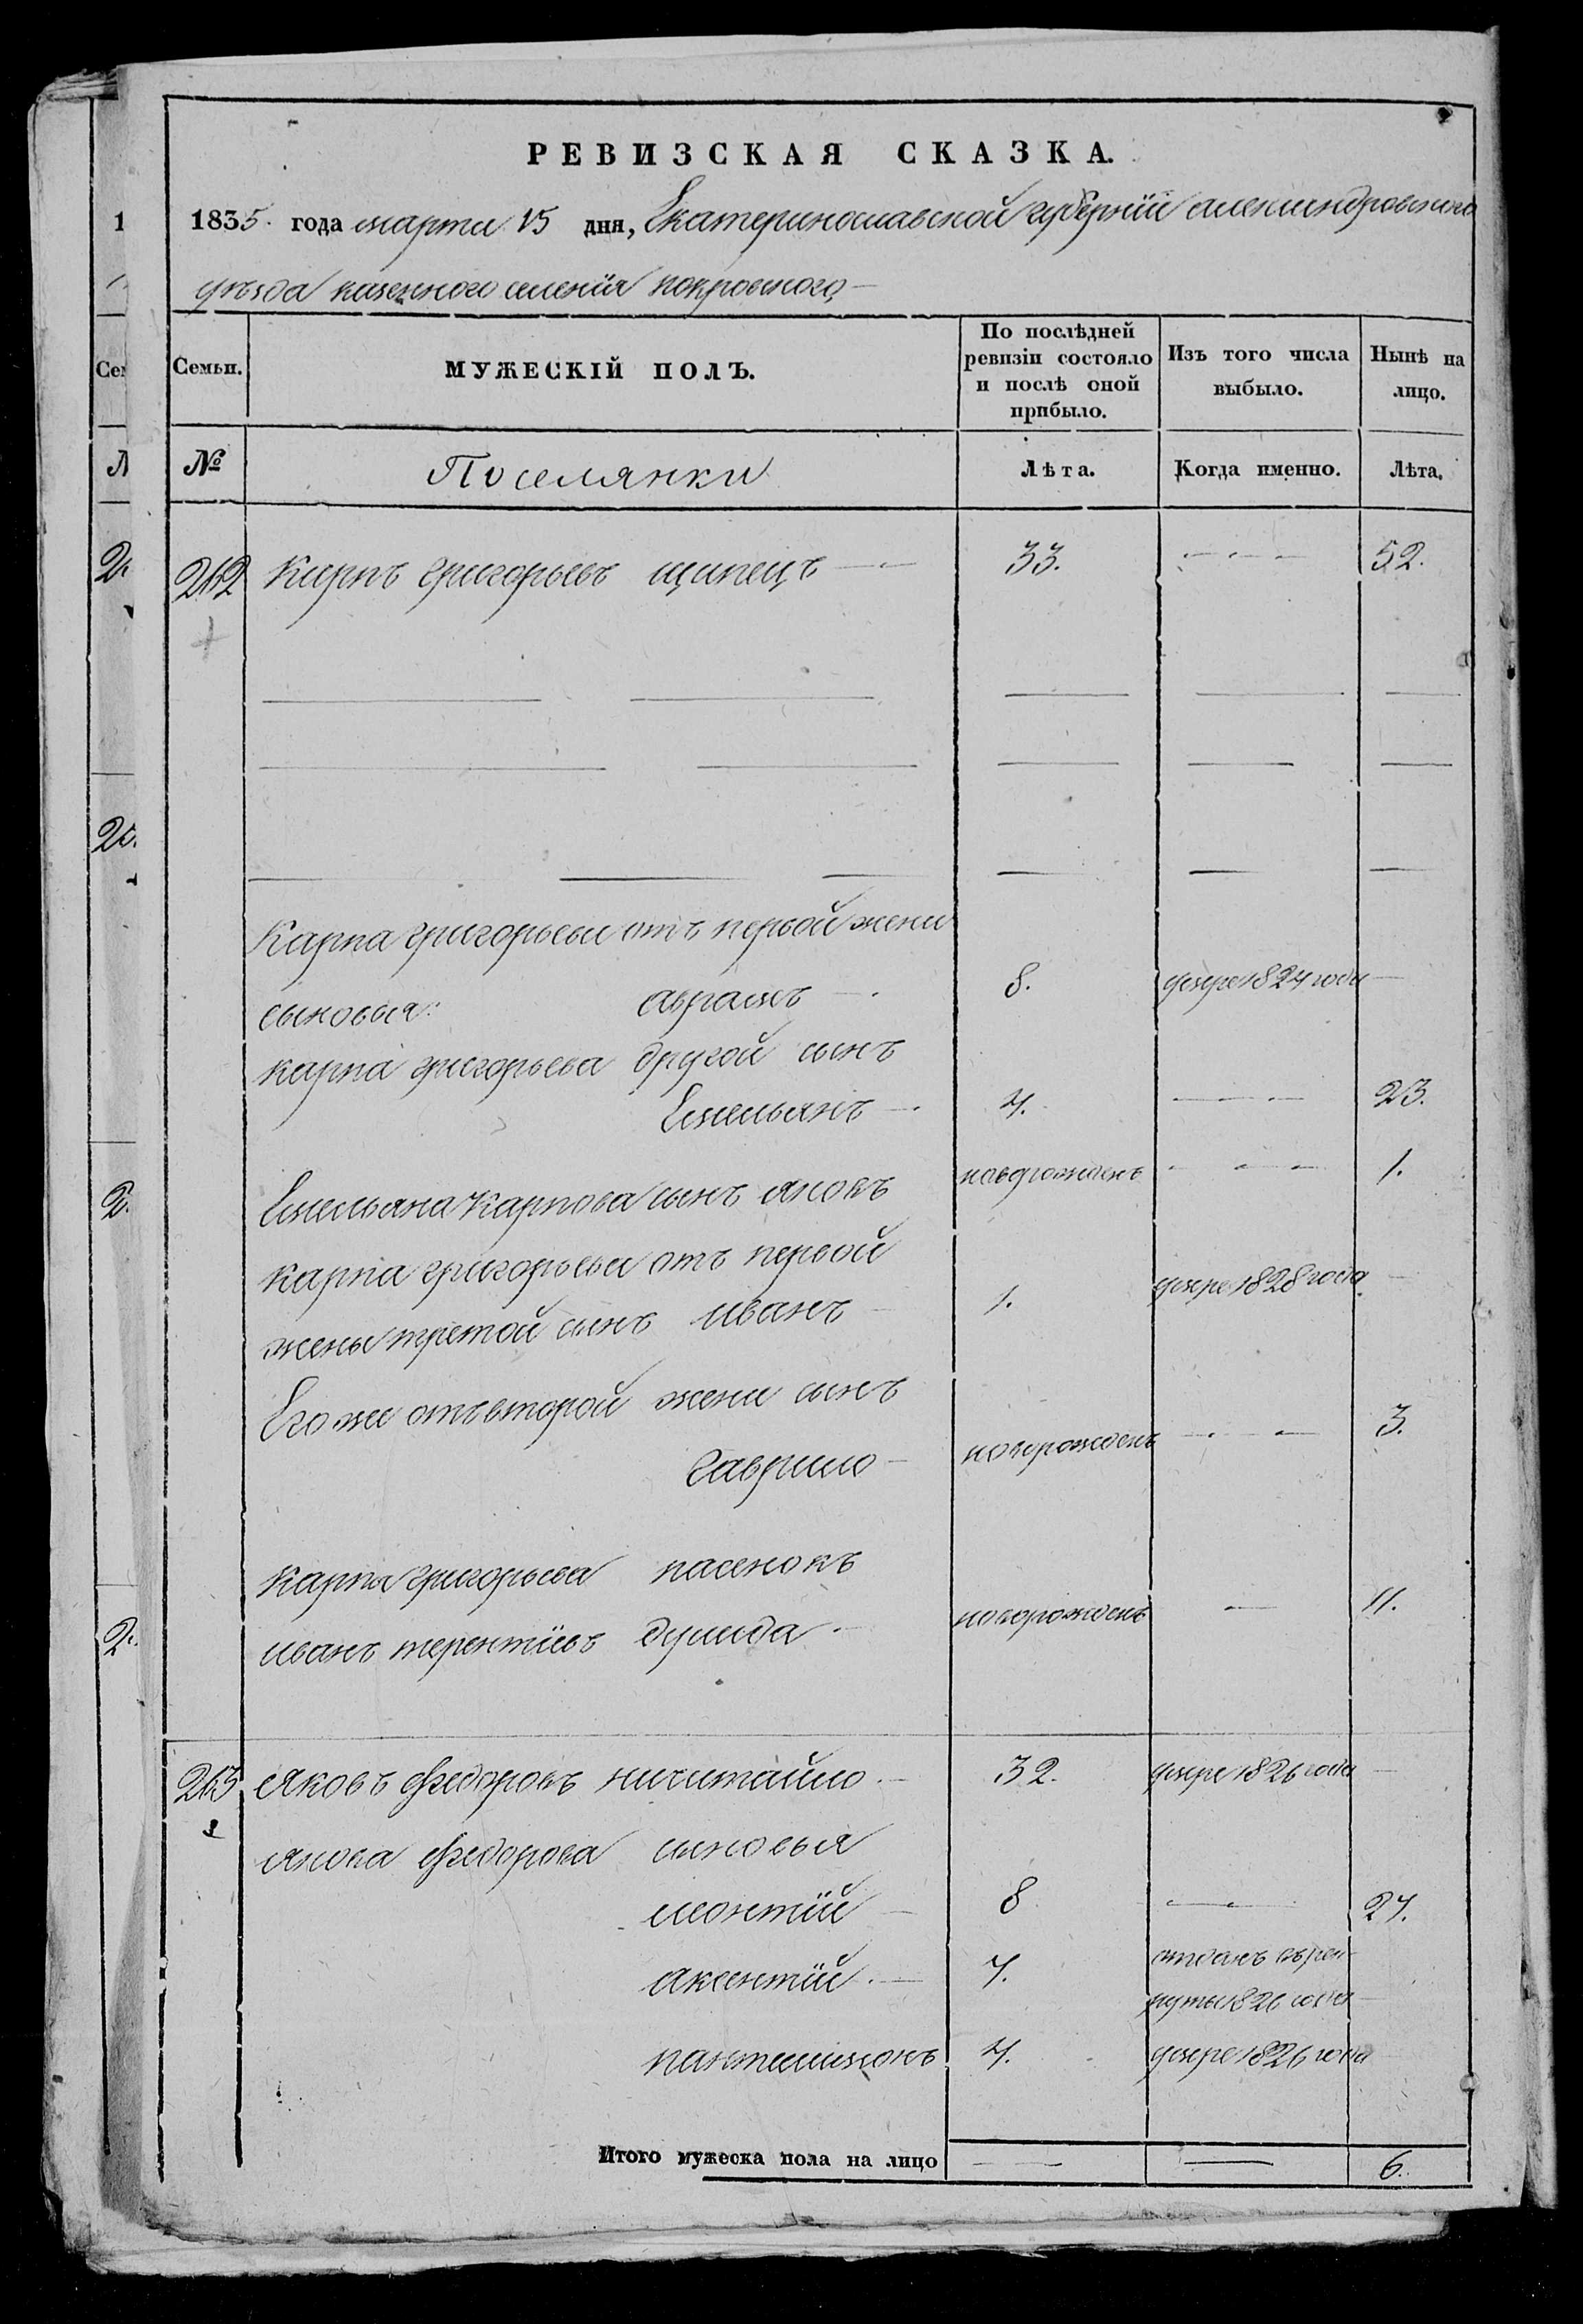 РЕВИЗСКАЯ СКАЗКА.
1835. года марта 15 дня, Екатеринославской губернїи александровскаго
уѣзда казенного селенїя покровского
Семьи.
МУЖЕСКІЙ ПОЛЪ.
По послѣдней ревизіи состояло и послѣ оной прибыло.
Изъ того числа выбыло.
Нынѣ на лицо.
№
Поселянки
Лѣта.
Когда именно.
Лѣта.
262 Карпъ григорьевъ щипецъ 33. 52.
Карпа григорьева отъ первой жени
сыновья: аврамъ 8. умре 1824 года
карпа григорьева другой сынъ
Емельянъ 4. 23.
Емельяна Карпова сынъ яковъ новорожденъ 1.
карпа григорьева отъ первой
жены третой сынъ иванъ 1. умре 1828 года
Его же отъ второй жени сынъ
гаврило новорожденъ 3.
карпа григорьева пасенокъ
иванъ терентїевъ новорожденъ 11.
263 Яковъ федоровъ ничитайло 32. умре 1826 года
якова федорова сыновья
леонтїй 8 27.
аксентїй 7. отданъ въ рек
руты 1826 года
пантелимонъ 4. умре 1826 года
Итого мужеска пола на лицо 6.